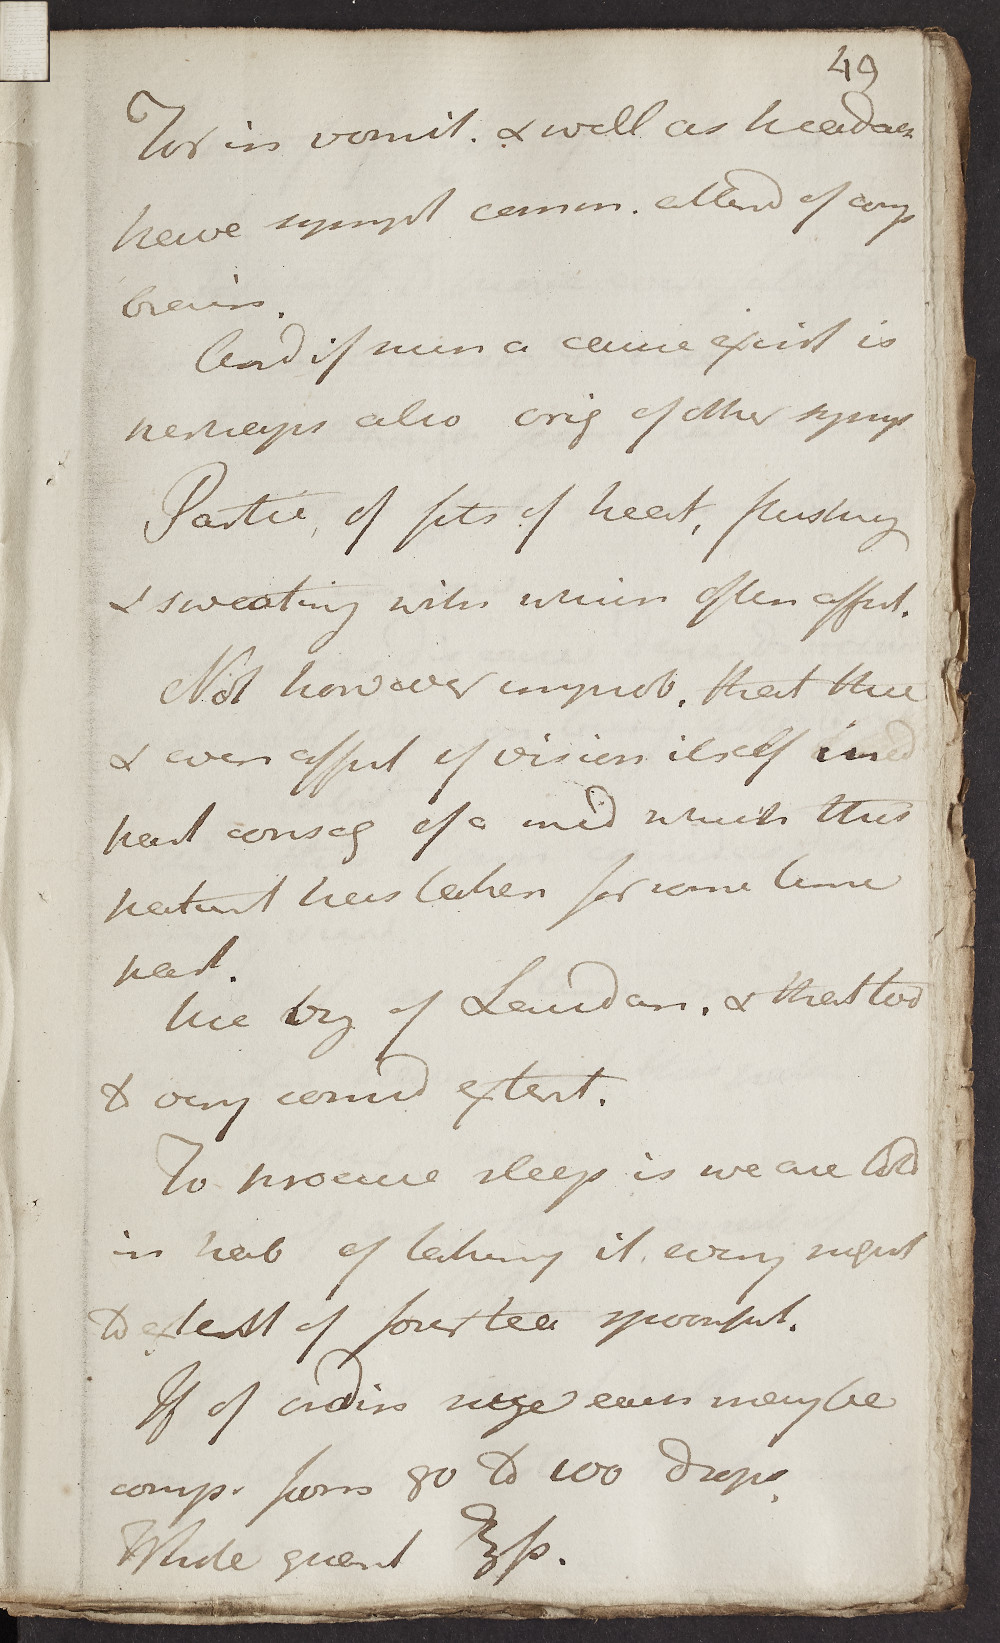 49
For in vomit. & well as headach
have sympt common. attend of comp
brain.
And if such a cause exist is
perhaps also orig of other symp
Partic, of fits of heat, flushing
& sweating with which often affect.
Not however improb. that these
& even affect of vision itself
part conseq of a med which this
patient has taken for some time
past.
hie by of Laudan. & that too
to very consid extent.
To procure sleep is we are told
in hab of taking it every night
to extent of four tea spoonful.
If of ordin size each may be
comp. from 80 to 100 drops.
Whole quant ℥ſs.